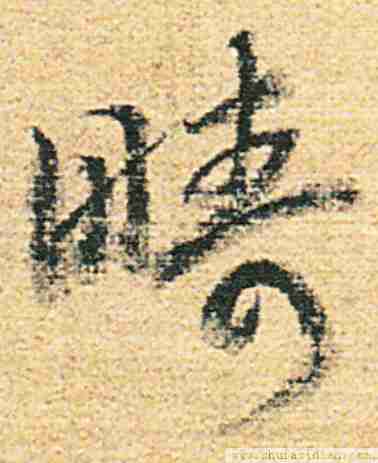 畴
www.shufazidian.com